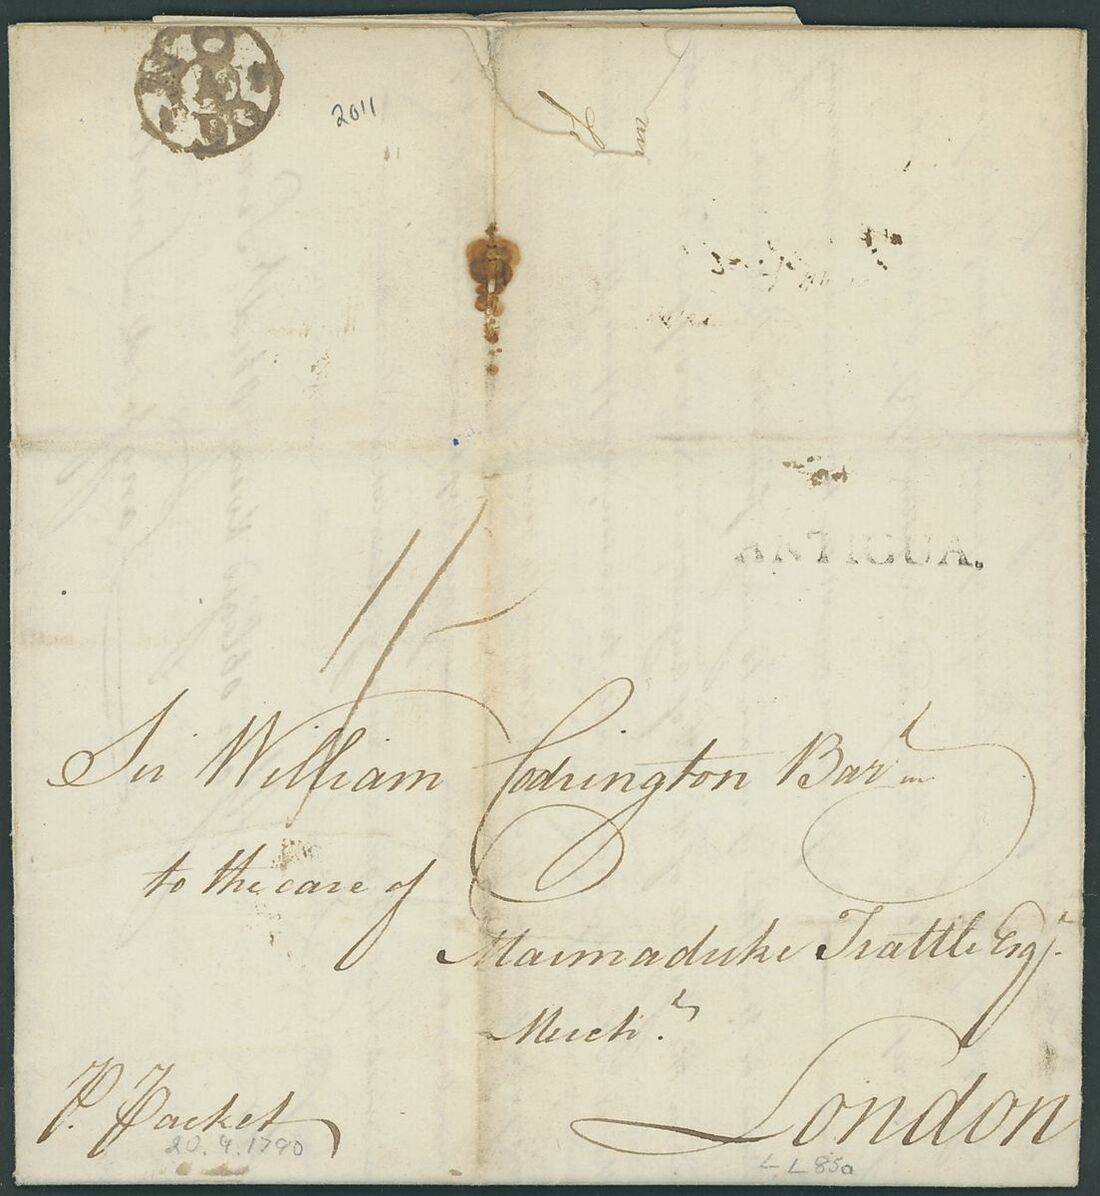 NO
2011
ANTIGUA.
1/
Sir William Codrington Bar.t
to the care of
Marmaduke Trattle Esqr.
Merch.t
P. Packet
London
20.9.1790
L L 85a